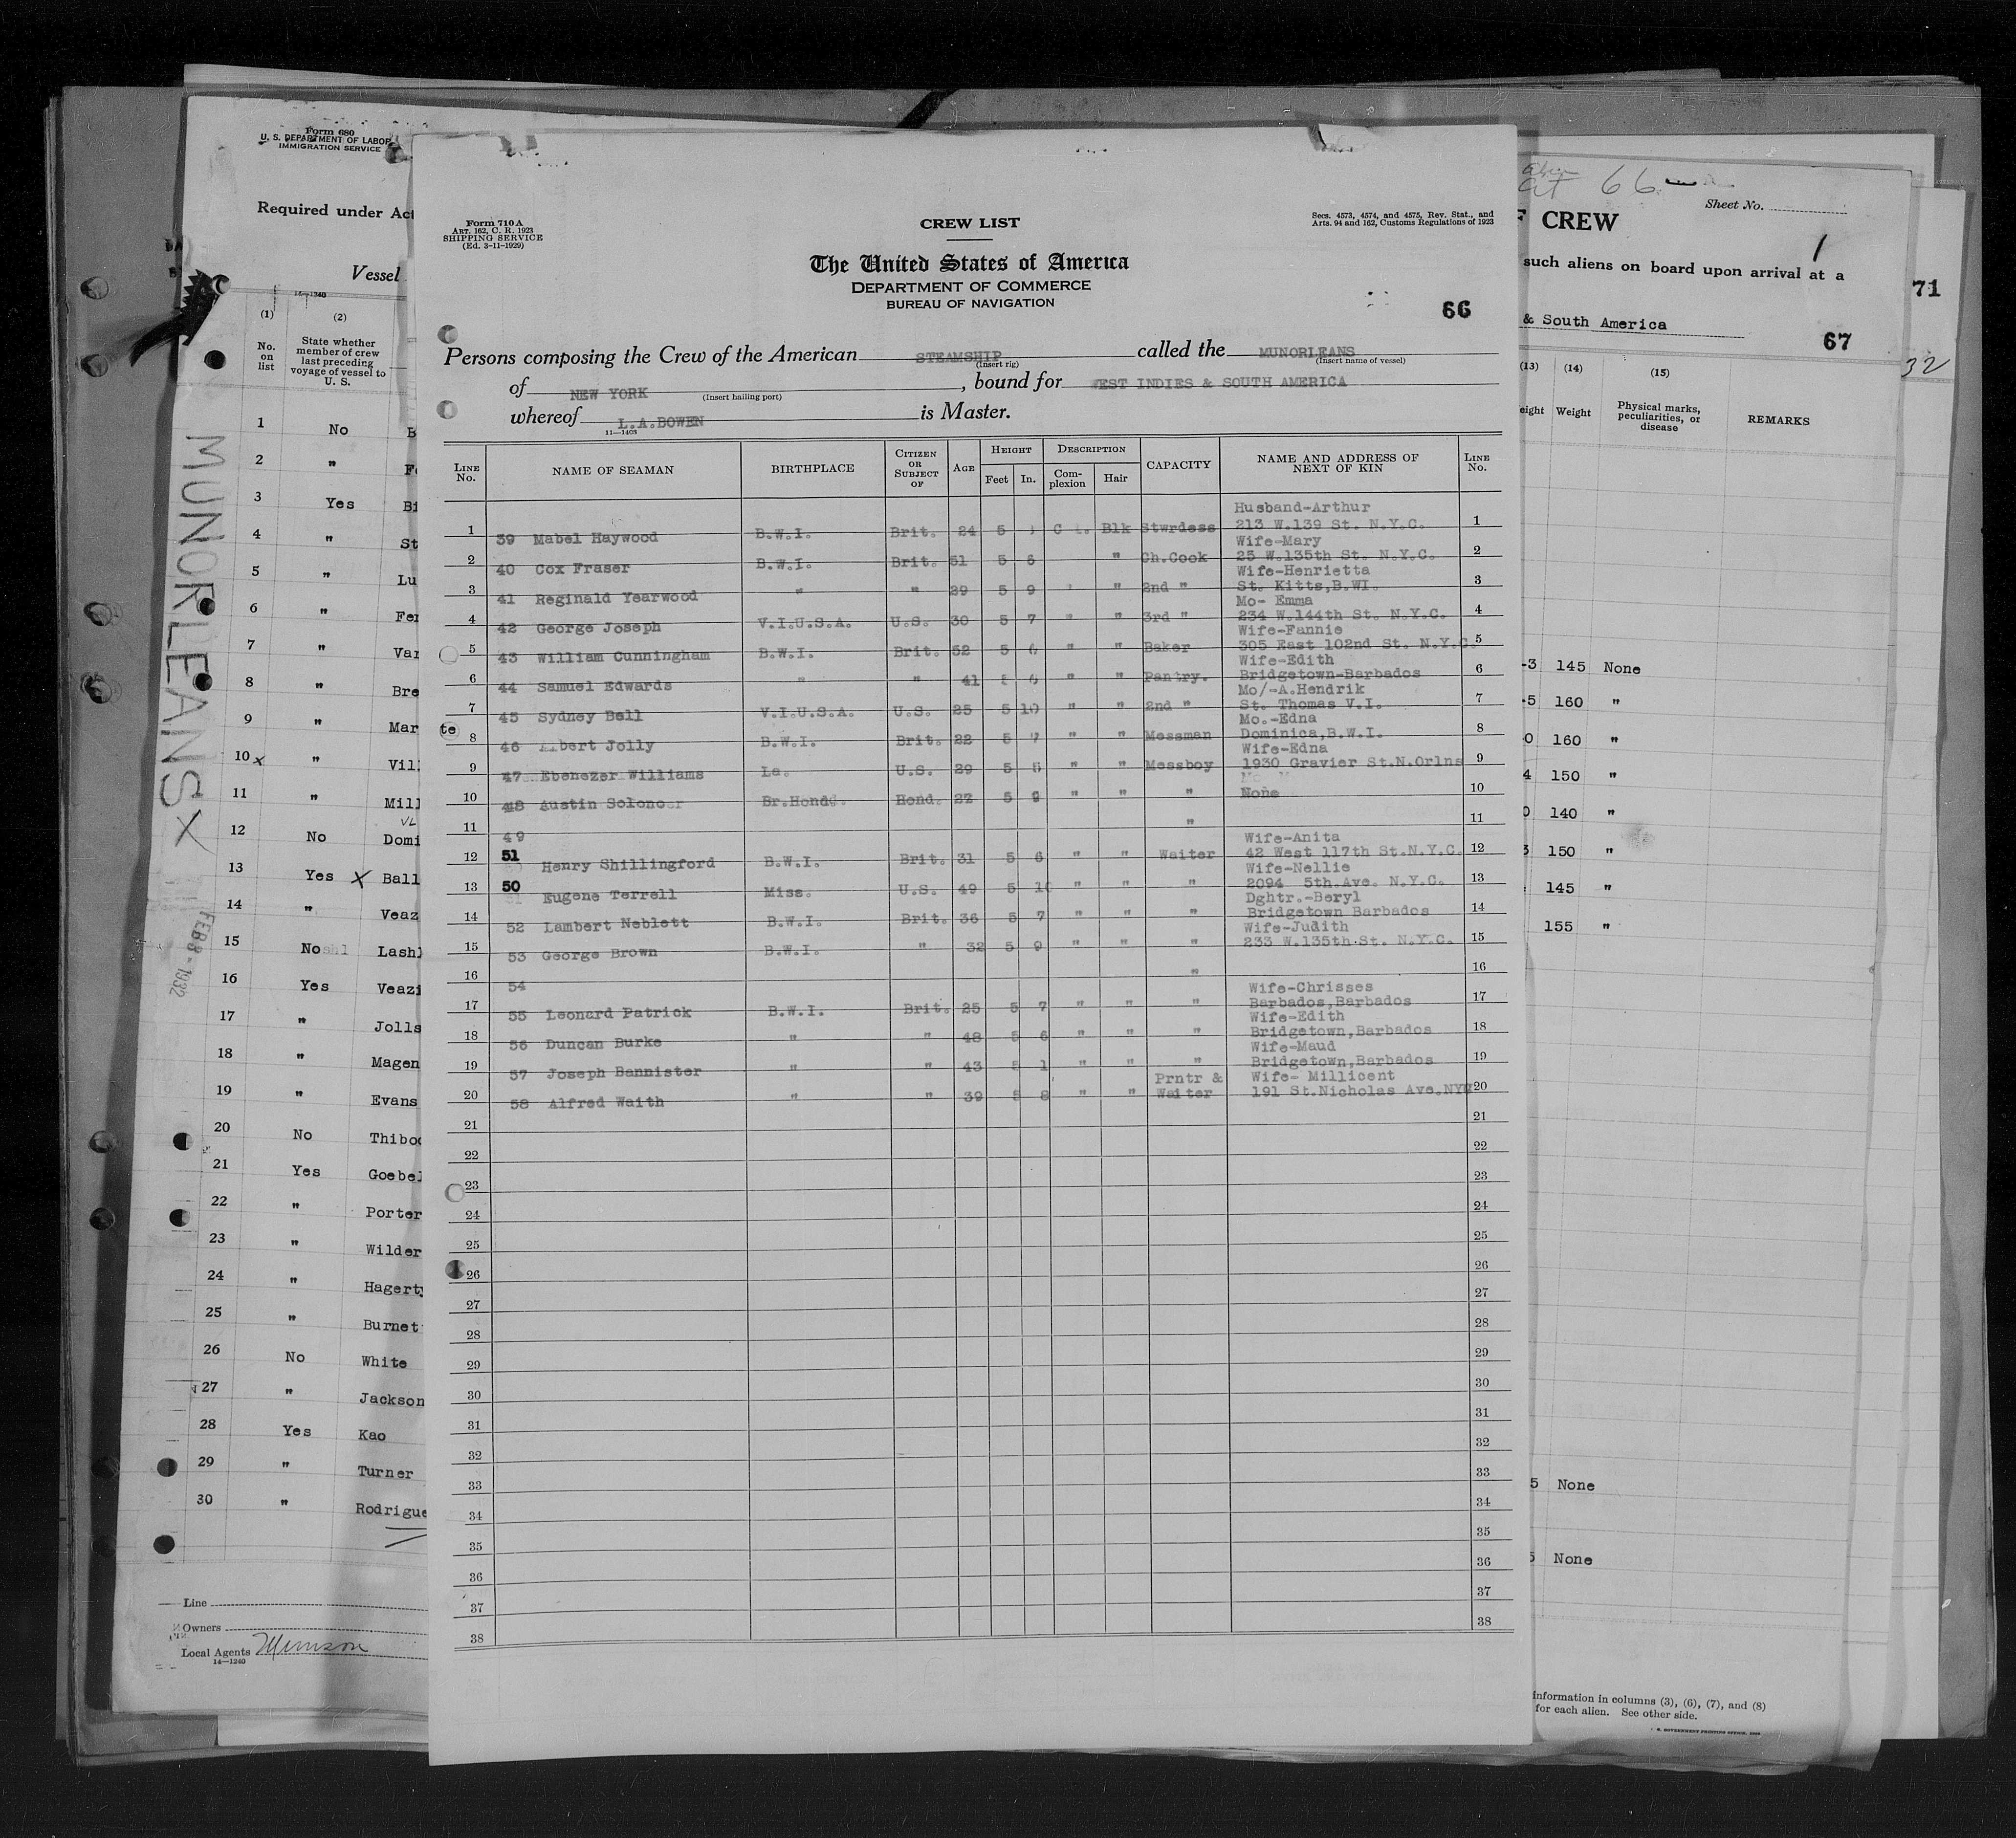 Form 680
U. S. DEPARTMENT OF LABOR
IMMIGRATION SERVICE
Required under Act
Vessel
14—1240
(1) (2)
No. on list
State whether member of crew last preceding voyage of vessel to U. S.
1 No B
2 " Fe
3 Yes Bi
4 " St
5 " Lu
6 " Fer
7 " Var
8 " Bre
9 " Mar
10 x " Vil
11 " Mill
12 No Domi
13 Yes X Ball
14 " Veaz
15 No Lash
16 Yes Veazi
17 " Jolls
18 " Magen
19 " Evans
20 No Thibo
21 Yes Goebel
22 " Porter
23 " Wilder
24 " Hagerty
25 " Burnet
26 No White
27 " Jackson
28 Yes Kao
29 " Turner
30 " Rodrigue
Line
Owners
Local Agents Munson
14—1240
MUNORLEANS X
FEB 8 - 1932
Form 710A
ART. 162, C. R. 1923
SHIPPING SERVICE
(Ed. 3-11-1929)
CREW LIST
Secs. 4573, 4574, and 4575, Rev. Stat., and
Arts. 94 and 162, Customs Regulations of 1923
The United States of America
DEPARTMENT OF COMMERCE
BUREAU OF NAVIGATION
66
Persons composing the Crew of the American STEAMSHIP called the MUNORLEANS
(Insert rig) (Insert name of vessel)
of NEW YORK, bound for WEST INDIES & SOUTH AMERICA
(Insert hailing port)
whereof L.A.BOWEN is Master.
11—1403
LINE No. NAME OF SEAMAN BIRTHPLACE CITIZEN OR SUBJECT OF AGE HEIGHT Feet In. DESCRIPTION Complexion Hair CAPACITY NAME AND ADDRESS OF NEXT OF KIN LINE No.
Husband-Arthur
1 39 Mabel Haywood B.W.I. Brit. 24 5 Blk Stwrdess 213 W.139 St. N.Y.C. 1
Wife-Mary
2 40 Cox Fraser B.W.I. Brit. 51 5 6 " Ch.Cook 25 W.135th St. N.Y.C. 2
Wife-Henrietta
3 41 Reginald Yearwood " " 29 5 9 " 2nd " St. Kitts,B.WI. 3
Mo- Emma
4 42 George Joseph V.I.U.S.A. U.S. 30 5 7 " " 3rd " 234 W.144th St. N.Y.C. 4
Wife-Fannie
5 43 William Cunningham B.W.I. Brit. 52 5 6 " " Baker 305 East 102nd St. N.Y.C. 5
Wife-Edith
6 44 Samuel Edwards " " 41 5 6 " " Pantry. Bridgetown-Barbados 6
Mo/-A.Hendrik
7 45 Sydney Bell V.I.U.S.A. U.S. 25 5 10 " " 2nd " St. Thomas V.I. 7
Mo.-Edna
te 8 46 Albert Jolly B.W.I. Brit. 22 5 7 " " Messman Dominica,B.W.I. 8
Wife-Edna
9 47 Ebenezer Williams La. U.S. 29 5 5 " " Messboy 1930 Gravier St.N.Orlns 9
10 48 Austin Solonoer Br.Hond. Hond. 22 5 9 " " " None 10
11 49 " 11
Wife-Anita
12 51 Henry Shillingford B.W.I. Brit. 31 5 6 " " Waiter 42 West 117th St.N.Y.C. 12
Wife-Nellie
13 50 Eugene Terrell Miss. U.S. 49 5 10 " " " 2094 5th.Ave. N.Y.C. 13
Dghtr.-Beryl
14 52 Lambert Neblett B.W.I. Brit. 36 5 7 " " " Bridgetown Barbados 14
Wife-Judith
15 53 George Brown B.W.I. " 32 5 9 " " " 233 W.135th St. N.Y.C. 15
16 54 " 16
Wife-Chrisses
17 55 Leonard Patrick B.W.I. Brit. 25 5 7 " " " Barbados,Barbados 17
Wife-Edith
18 56 Duncan Burke " " 48 5 6 " " " Bridgetown,Barbados 18
Wife-Maud
19 57 Joseph Bannister " " 43 5 1 " " " Bridgetown,Barbados 19
Prntr & Wife- Millicent
20 58 Alfred Waith " " 39 5 8 " " Waiter 191 St.Nicholas Ave.NYC 20
21 21
22 22
23 23
24 24
25 25
26 26
27 27
28 28
29 29
30 30
31 31
32 32
33 33
34 34
35 35
36 36
37 37
38 38
66
Sheet No.
CREW
1
such aliens on board upon arrival at a
& South America
67
(13) (14) (15)
eight Weight Physical marks, peculiarities, or disease REMARKS
-3 145 None
-5 160 "
0 160 "
4 150 "
0 140 "
3 150 "
145 "
155 "
5 None
5 None
information in columns (3), (6), (7), and (8)
for each alien. See other side.
U. S. GOVERNMENT PRINTING OFFICE
71
32